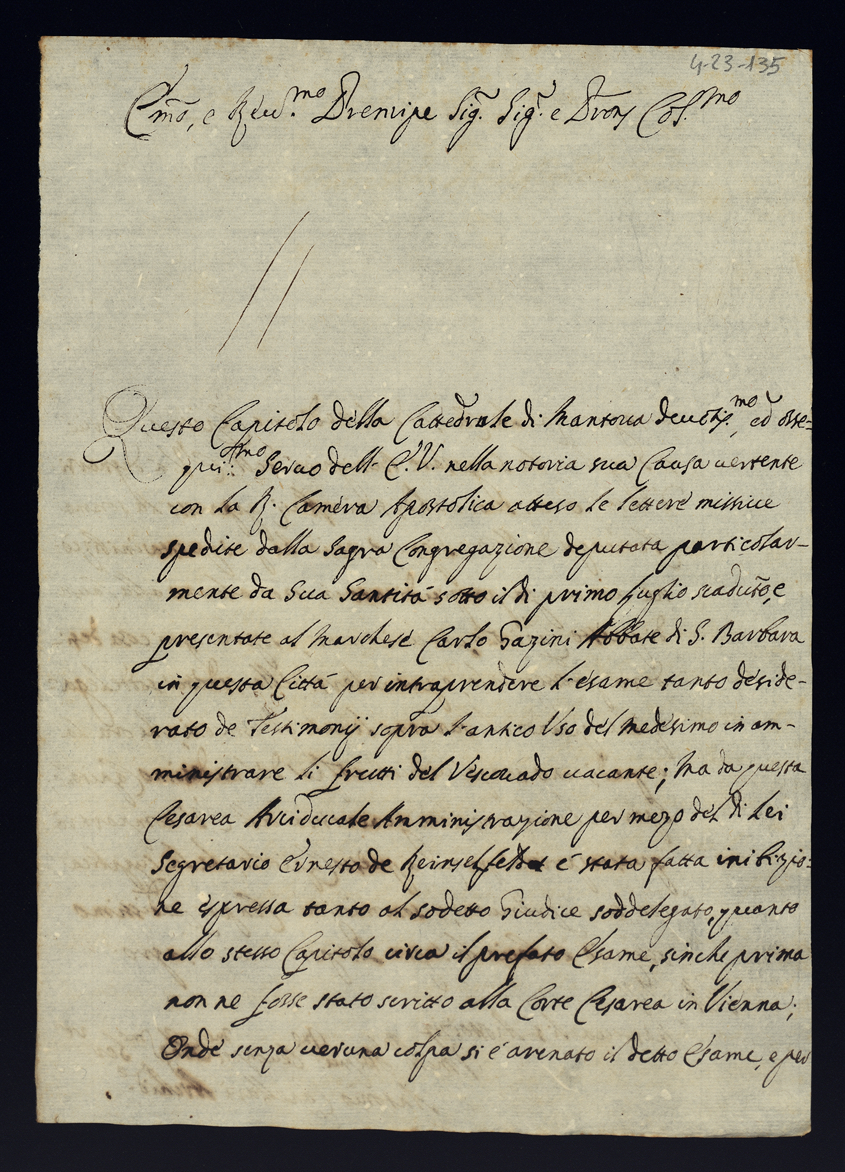 4-23-135
Em̃o, e Reu.mo Prencipe Sig.r Sig.r e Pron Col.mo
Questo Capitolo della Cattedrale di Mantova deuotis.mo, ed osse=
quio.mo Seruo dell' E. V. nella notoria sua Causa uertente
con la R. Camera Apostolica atteso le lettere missiue
spedite dalla Sagra Congregazione deputata particolar-
mente da Sua Santità sotto il di primo luglio scaduto, e
presentate al Marchese Carlo Gazini Abbate di S. Barbara
in questa Città per intraprendere l'esame tanto deside-
rato de Testimonij sopra l'antico Uso del medesimo in am-
ministrare li frutti del Vescouado uacante; Ma da questa
Cesarea Arciducale Amministrazione per mezo del di Lei
Segretario Ernesto de Reinselfeldt è stata fatta inibizio=
ne espressa tanto al sodetto Giudice soddelegato, quanto
allo stesso Capitolo circa il prefato Esame, sin che prima
non ne fosse stato scritto alla Corte Cesarea in Vienna;
Onde senza ueruna colpa si è arenato il detto Esame, e per